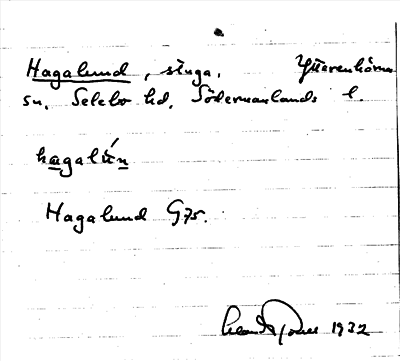 Hagalund, stuga. Ytterenhörna
sn, Selebo hd, Södermanlands l.
hagalún
Hagalund G75.
1932